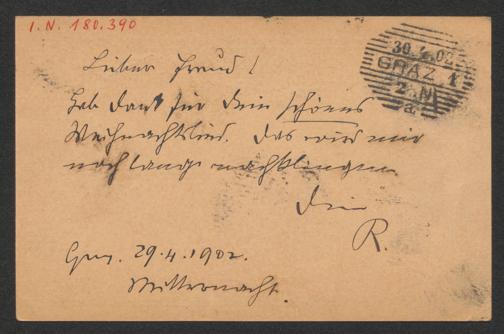 I.N. 180.390
30.4.02
GRAZ 1
2 N
a
Lieber Freund!
Hab Dank für Dein schönes
Weihnachtslied. Das wird mir
noch lange nachklingen
Dein
R.
Graz. 29.4.1902.
Mitternacht.